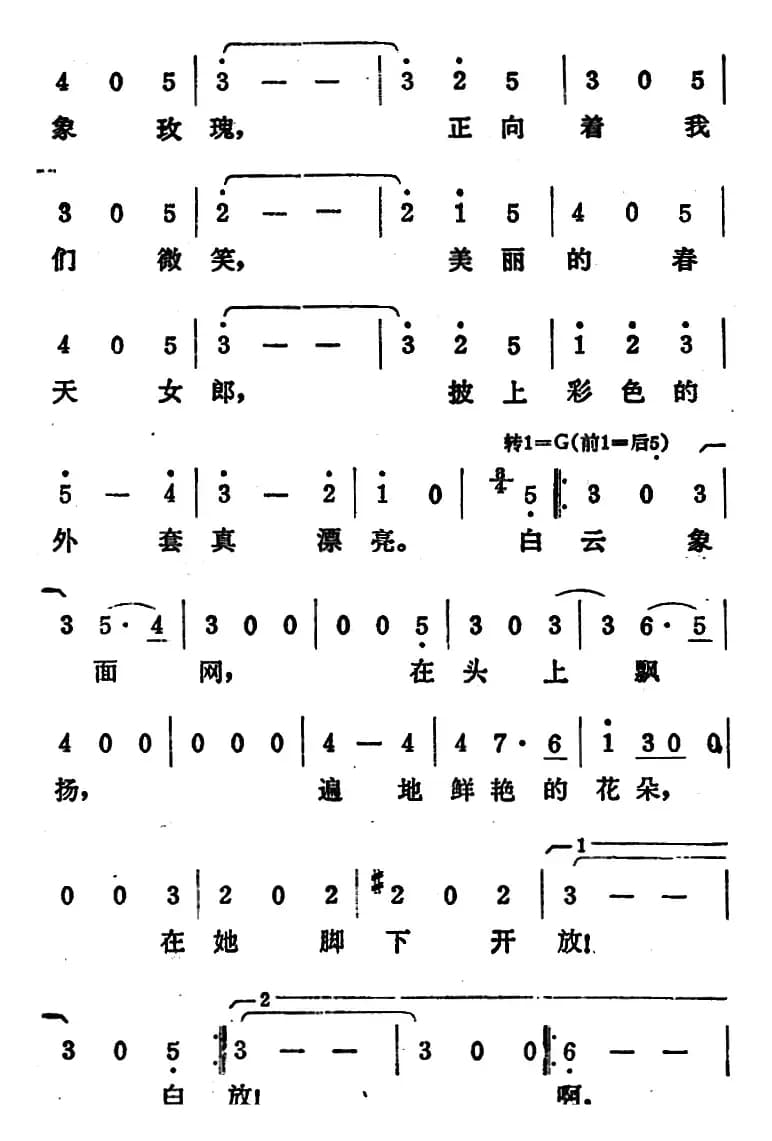 4 0 5 | 3 — — | 3 2 5 | 3 0 5 |
象 玫 瑰, 正 向 着 我
3 0 5 | 2 — — | 2 1 5 | 4 0 5 |
们 微 笑, 美 丽 的 春
4 0 5 | 3 — — | 3 2 5 | 1 2 3 |
天 女 郎, 披 上 彩 色 的
转1=G(前1=后5)
5 — 4 | 3 — 2 | 1 0 | 3/4 5 |: 3 0 3 |
外 套 真 漂 亮。 白 云 象
3 5· 4 | 3 0 0 | 0 0 5 | 3 0 3 | 3 6· 5 |
面 网, 在 头 上 飘
4 0 0 | 0 0 0 | 4 — 4 | 4 7· 6 | 1 3 0 0 |
扬, 遍 地 鲜 艳 的 花 朵,
1
0 0 3 | 2 0 2 | #2 0 2 | 3 — — |
在 她 脚 下 开 放!
2
3 0 5 :| 3 — — | 3 0 0 :| 6 — — |
白 放! 啊。